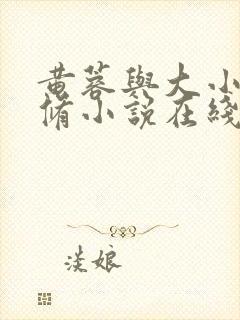 黄蓉與大小
脩小說在綫
淡娘